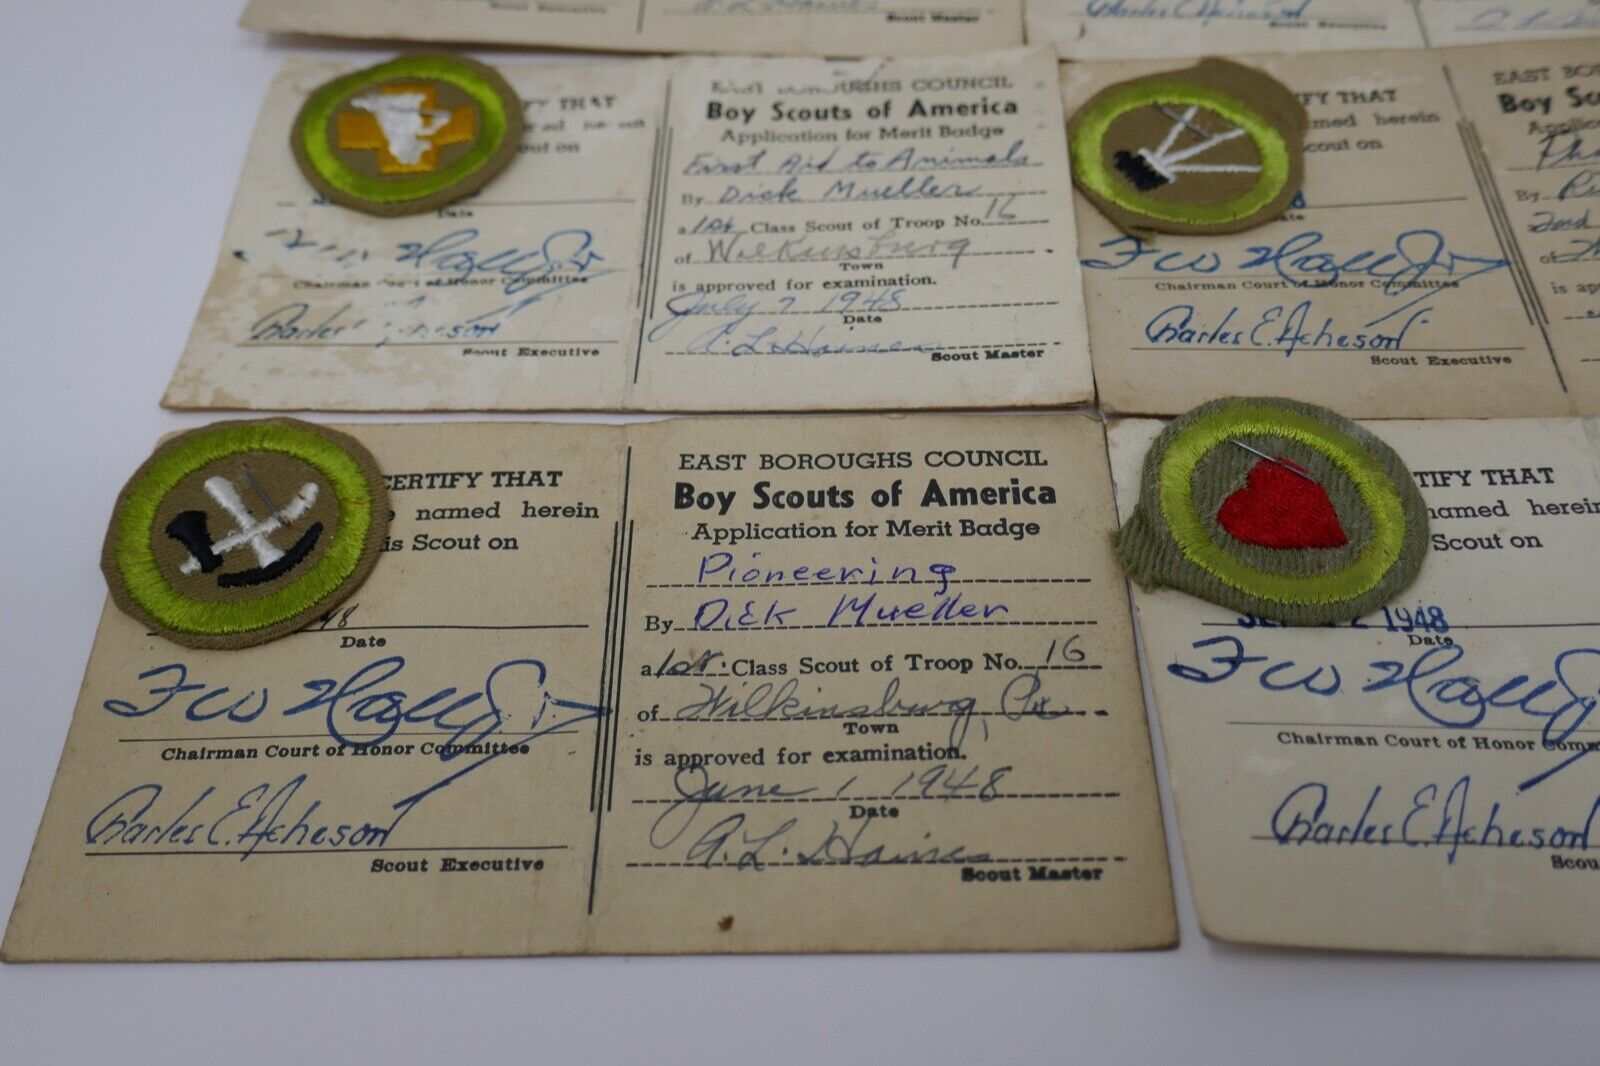 Scout Executive
A L Haines
Scout Master
Charles E. Acheson
Scout Executive
FY THAT
out on
Date
Chairman Court of Honor Committee
Charles Acheson
Scout Executive
EAST BOROUGHS COUNCIL
Boy Scouts of America
Application for Merit Badge
First Aid to Animals
By Dick Mueller
a 1st Class Scout of Troop No. 16
of Wilkinsburg
Town
is approved for examination.
July 7 1948
Date
A. L. Haines
Scout Master
FY THAT
med herein
cout on
8
ate
Chairman Court of Honor Committee
Charles E. Acheson
Scout Executive
EAST BO
Boy Sc
Applic
By
2nd
of
is ap
CERTIFY THAT
named herein
is Scout on
48
Date
Chairman Court of Honor Committee
Charles E. Acheson
Scout Executive
EAST BOROUGHS COUNCIL
Boy Scouts of America
Application for Merit Badge
Pioneering
By Dick Mueller
a 1st. Class Scout of Troop No. 16
of Wilkinsburg, Pa
Town
is approved for examination.
June 1 1948
Date
A. L. Haines
Scout Master
TIFY THAT
named herein
Scout on
1948
Date
Chairman Court of Honor Comm
Charles E. Acheson
Scou